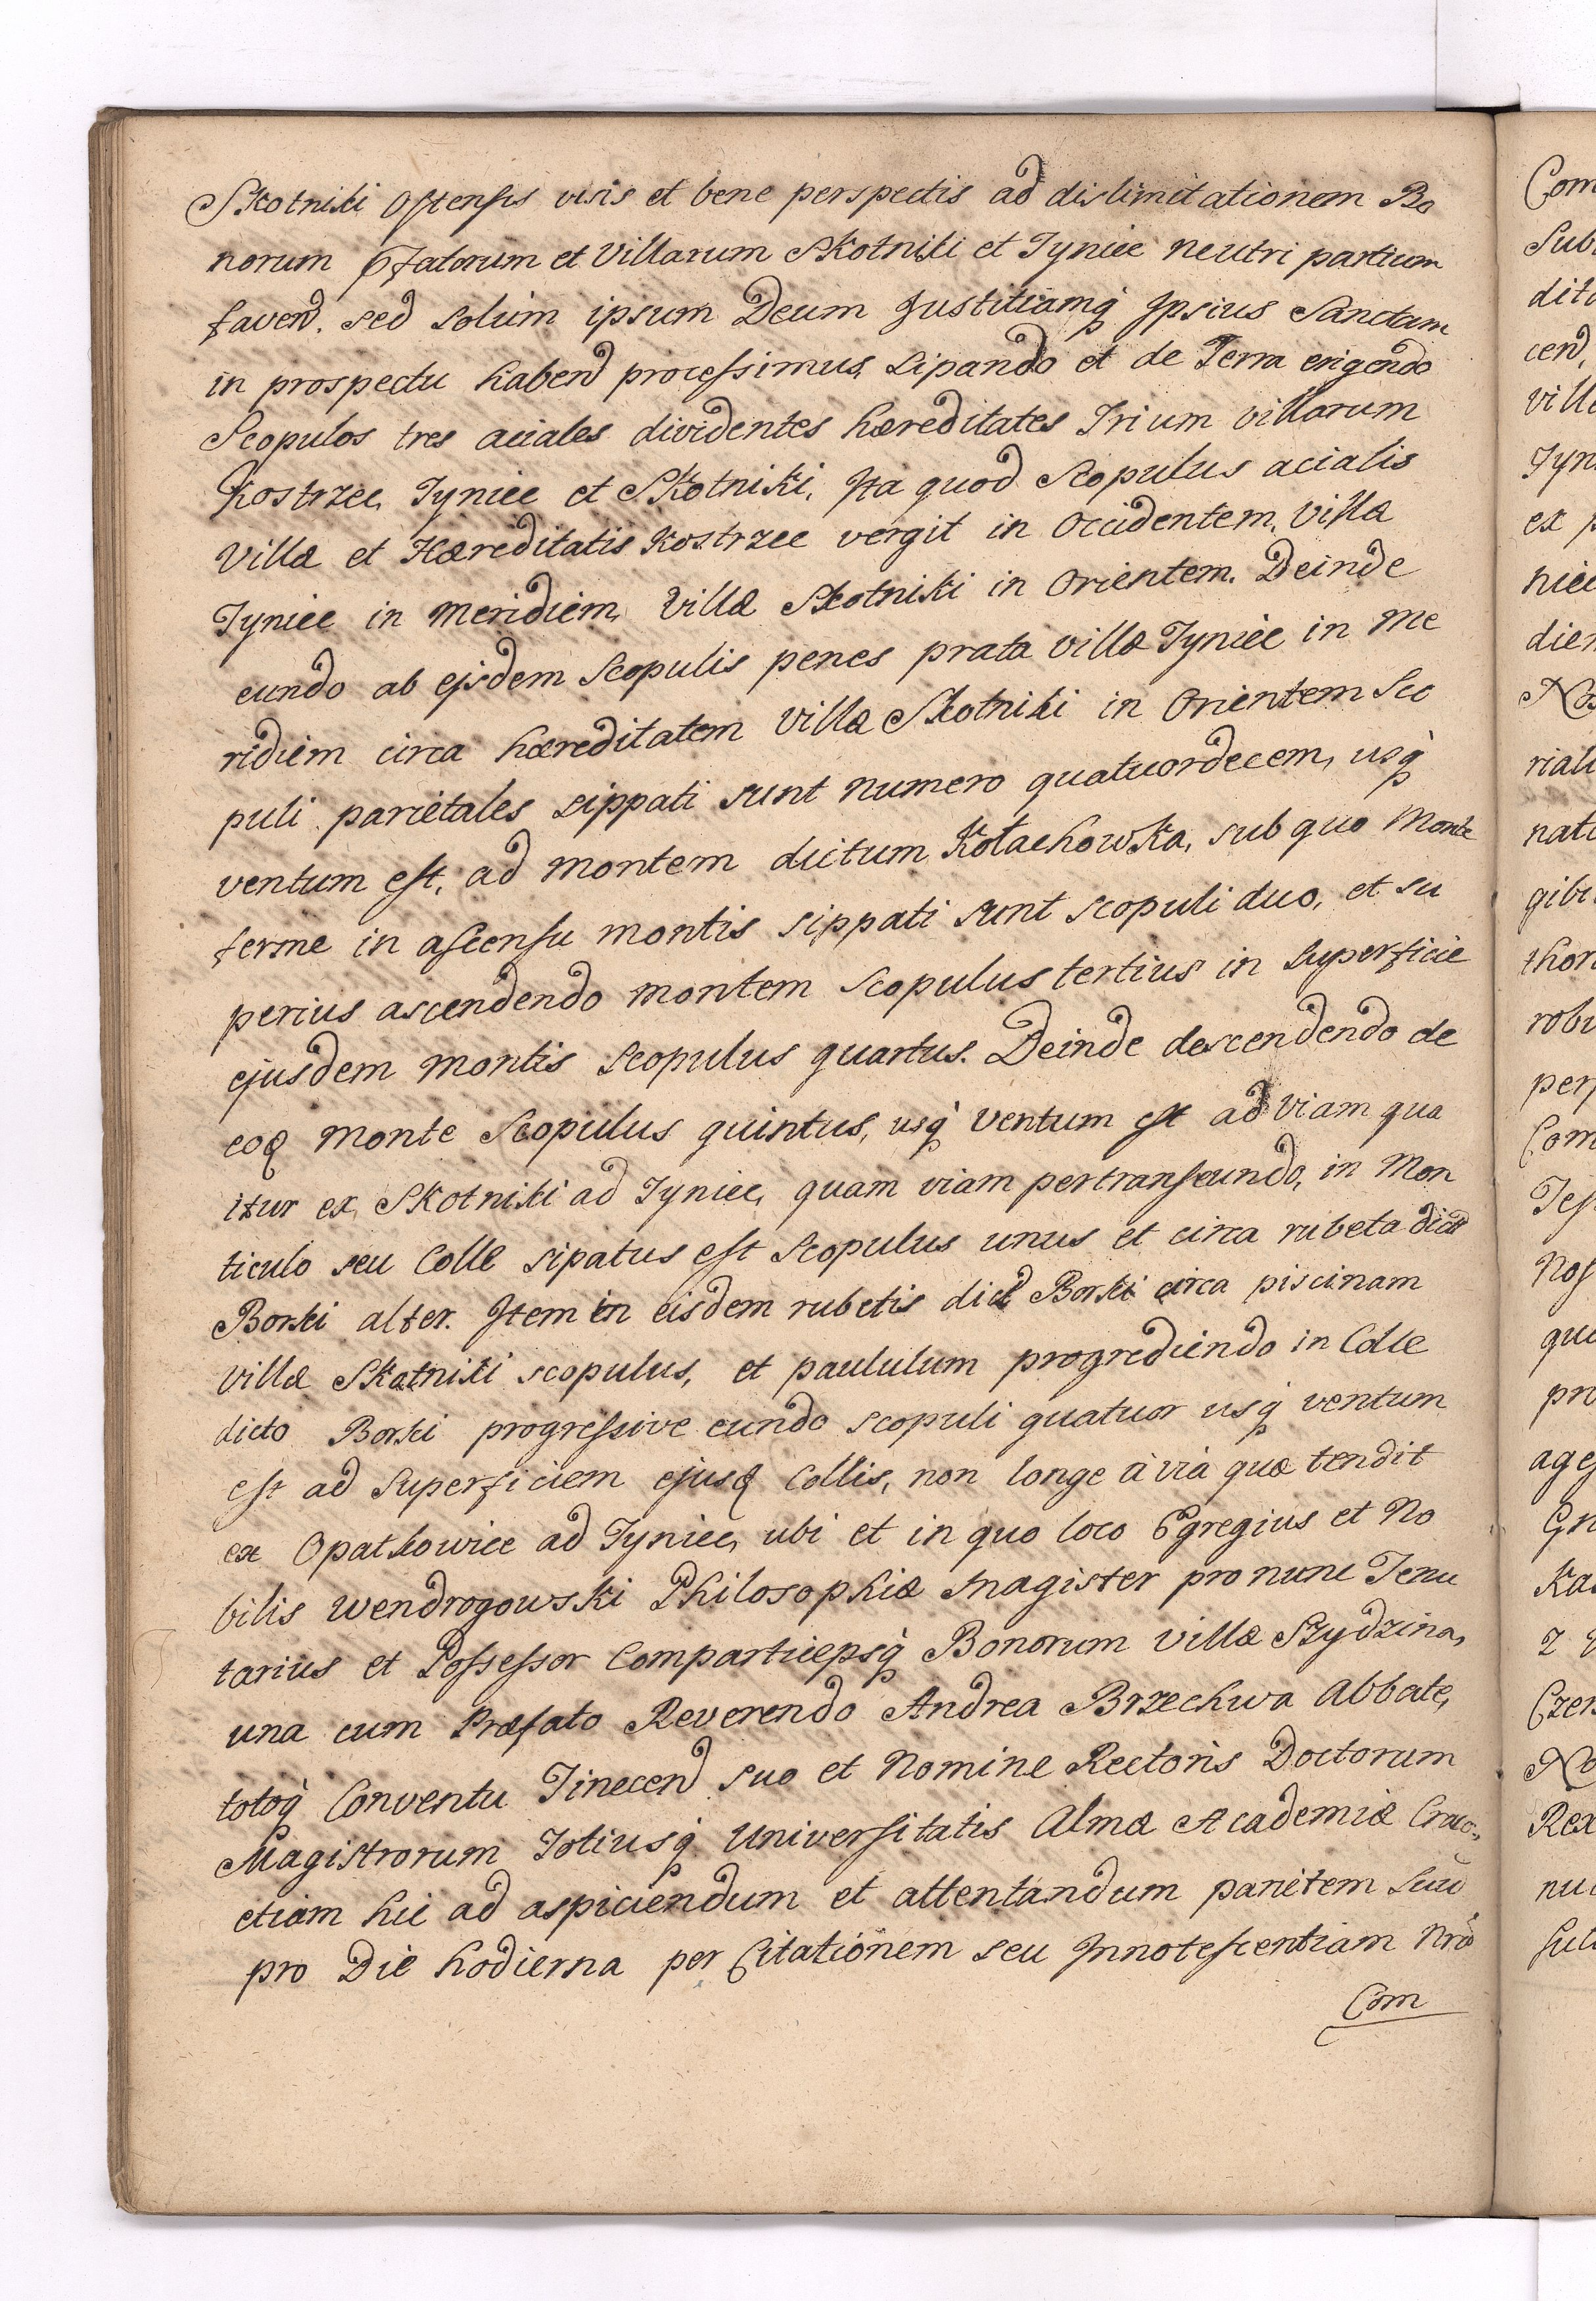 Skotniki Ostensis visis et bene perspectis ad dislimitationem Bo
norum Pfatorum et Villarum Skotniki et Tyniec neutri partium
favend. sed solum ipsum Deum Justitiamq Ipsius Sanctam
in prospectu habend processimus, sipando et de Terra erigendo
Scopulos tres aciales dividentes hæreditates Trium villarum
Kostrzec, Tyniec et Skotniki, Ita quod Scopulus acialis
Villæ et Hæreditatis Kostrzec vergit in Occidentem, Villæ
Tyniec in Meridiem, Villæ Skotniki in Orientem. Deinde
eundo ab ejsdem Scopulis penes prata villæ Tyniec in Me
ridiem circa hæreditatem Villæ Skotniki in Orientem Sco
puli parietales sippati sunt numero quatuordecem, usq
ventum est, ad montem dictum Kołachowka, sub quo Monte
ferme in ascensu montis sippati sunt scopuli duo, et su
perius ascendendo montem scopulus tertius in superficie
ejusdem montis scopulus quartus. Deinde descendendo de
eoq Monte Scopulus quintus, usq ventum est ad Viam qua
itur ex Skotniki ad Tyniec, quam viam pertranseundo, in Mon
ticulo seu Colle sipatus est Scopulus unus et circa rubeta dict
Borki alter. Item in eisdem rubetis dict Borki circa piscinam
Villæ Skotniki scopulus, et paululum progrediendo in Colle
dicto Borki progressive eundo scopuli quatuor usq ventum
est ad Superficiem ejusq Collis, non longe à vià quæ tendit
ex Opatkowice ad Tyniec, ubi et in quo loco Egregius et No
bilis Wendrogowski Philosophiæ Magister pro nunc Tenu
tarius et Possessor Comparticepsq Bonorum Villæ Szydzina,
una cum Præfato Reverendo Andrea Brzechwa Abbate,
totoq Conventu Tinecen suo et Nomine Rectoris Doctorum
Magistrorum Totiusq Universitatis Almæ Academiæ Craco.,
etiam hic ad aspiciendum et attentandum parietem suu
pro Die hodierna per Citationem seu Innotescentiam Nrã
Com